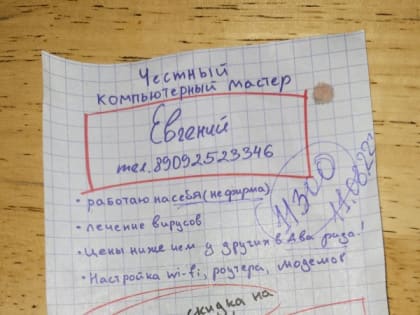 Честный
компьютерный мастер
Евгений
тел. 89092523346
• работаю на себя (не фирма)
• лечение вирусов
• Цены ниже чем у других в два раза!
• Настройка wi-fi, роутера, модемов
скидка на